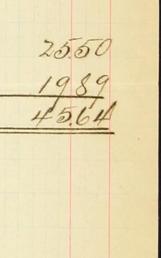 25.50
1989
45.64